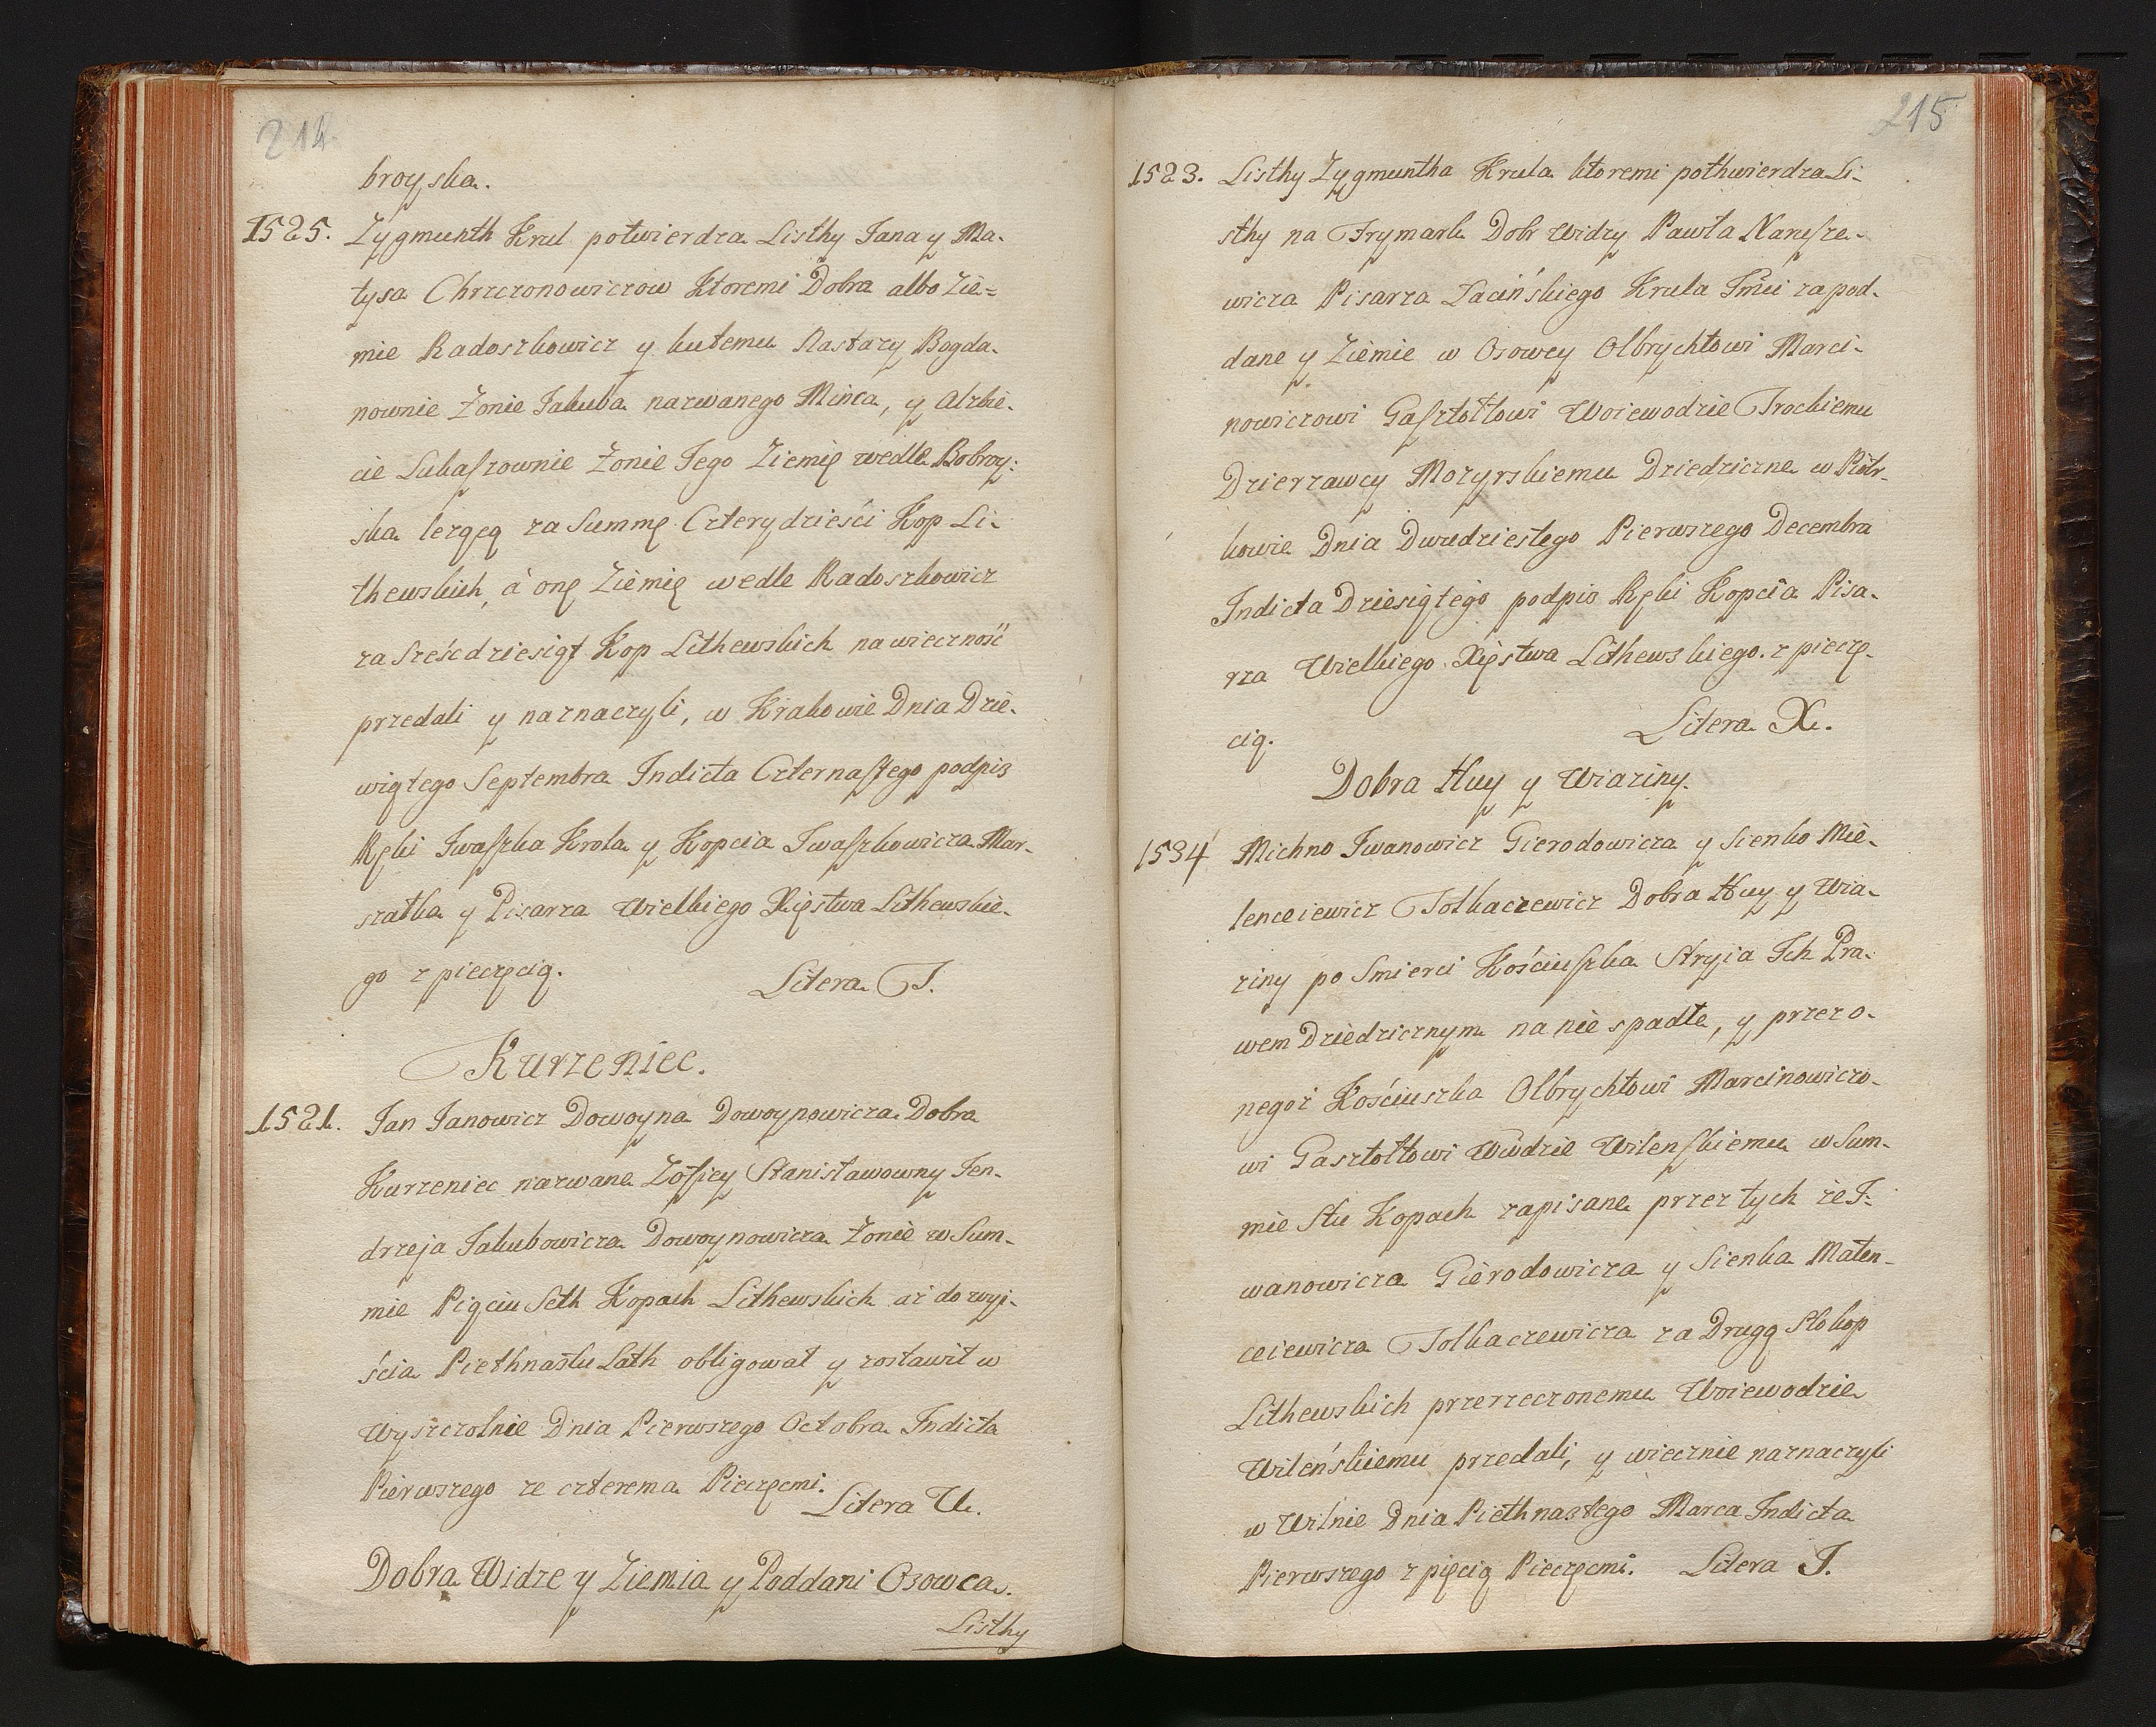 214
broyska.
1525. Zygmunth Krul potwierdza Listhy Jana y Ma-
tysa Chrzczonowiczow Ktoremi Dobra albo Zie=
mie Radoszkowicz y kutemu Nastazy Bogda-
nownie Żonie Jakuba nazwanego Minca, y Alzbie-
cie Lukaszownie Żonie Jego Ziemię wedle Bobroy:
ska lezącą za Summę Czterydzieści Kop Li-
thewskich, à onę Ziemię wedle Radoszkowicz
za Sześcdziesiąt Kop Lithewskich na wieczność
przedali y naznaczyli, w Krakowie Dnia Dzie-
wiątego Septembra Indicta Czternastego podpis
Ręki Iwaszka Krola y Kopcia Iwaszkowicza Mar-
szalka y Pisarza Wielkiego Xięstwa Lithewskie-
go z pieczęcią.
Litera T.
Kurzeniec.
1521. Jan Janowicz Dowoyna Dowoynowicza Dobra
Kurzeniec nazwane Zofiey Stanisławowny Jen-
drzeja Jakubowicza Dowoynowicza Żonie w Sum-
mie Piąciu Seth Kopach Lithewskich aż do wyj-
ścia Piethnastu Lath obligował y zostawił w
Wyszczolnie Dnia Pierwszego Octobra Indicta
Pierwszego ze czterema Pieczęcmi.
Litera U.
Dobra Widze y Ziemia y Poddani Osowca.
Listhy
215
1523. Listhy Zygmuntha Krula ktoremi pothwierdza Li-
sthy na Frymark Dobr Widzy Pawła Narusze-
wicza Pisarza Łacińskiego Krula Jmci za pod-
dane y Ziemie w Osowcy Olbrychtowi Marci-
nowiczowi Gasztołtowi Woiewodzie Trockiemu
Dzierzawcy Mozyrskiemu Dziedziczne w Piotr-
kowie Dnia Dwudziestego Pierwszego Decembra
Indicta Dziesiątego podpis Ręki Kopcia Pisa-
rza Wielkiego Xięstwa Lithewskiego z pieczę-
cią.
Litera X.
Dobra Huy y Wiaziny.
1534 Michno Iwanowicz Gierodowicza y Sienko Mie-
lenceiewicz Tolkaczewicz Dobra Huy y Wia-
ziny po Smierci Kościuszka Stryia Ich Pra-
wem Dziedzicznym na nie spadłe, y przez o-
negoż Kościuszka Olbrychtowi Marcinowiczo-
wi Gasztołtowi Wwdzie Wilenskiemu w Sum-
mie Stu Kopach zapisane przez tych że I-
wanowicza Gierodowicza y Sienka Malen-
ceiewicza Tolkaczewicza za Drugą Sto kop
Lithewskich przerzeczonemu Woiewodzie
Wileńskiemu przedali, y wiecznie naznaczyli
w Wilnie Dnia Piethnastego Marca Indicta
Pierwszego z pięcią Pieczęcmi. Litera J.